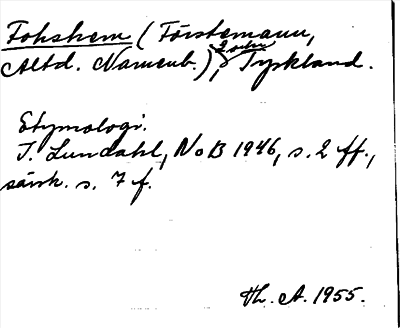 Fohshem (Förstemann,
Altd. Namenb.), Tyskland.
Etymologi.
I. Lundahl, NoB 1946, s. 2 ff.,
särsk. s. 7 f.
Th. A. 1955.